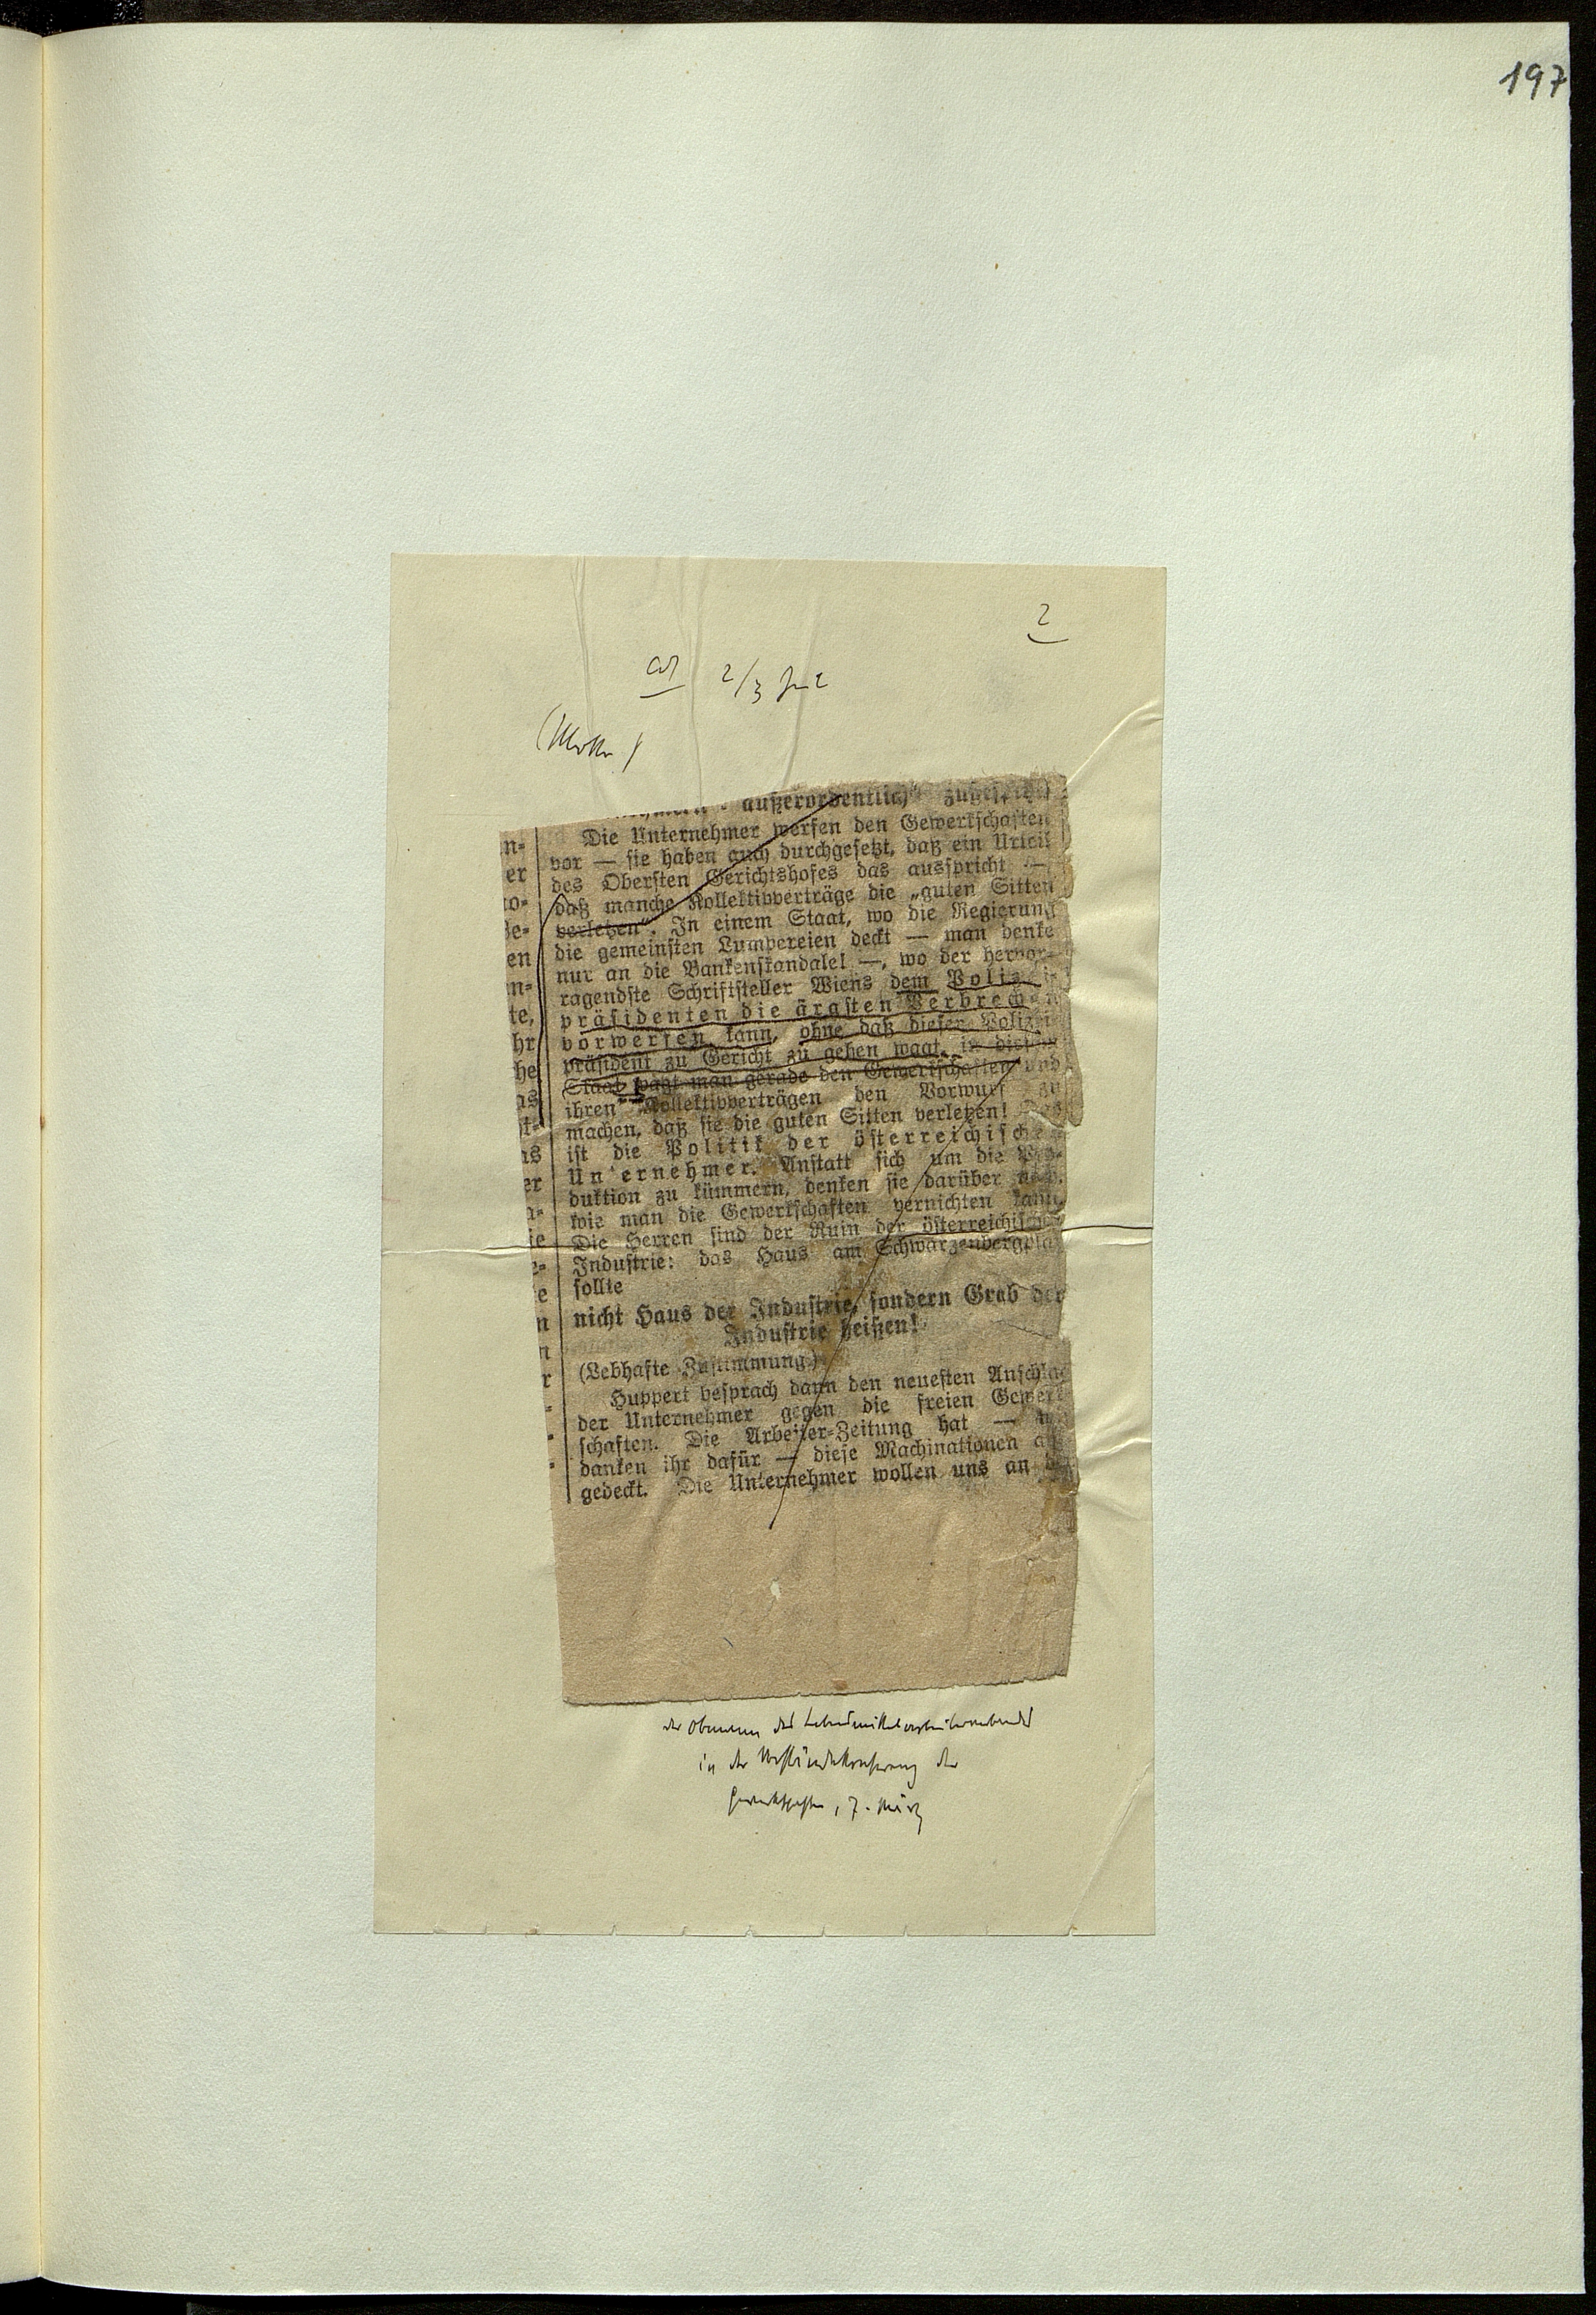 197
2
2/3
(Motto)
außerordentlich"
n-
er
o-
Be-
en
n-
te,
hr
he
as
t-
as
er
a-
ie
e-
e
n
n
r
-
-
-
Die Unternehmer werfen den Gewerkschaften
vor — sie haben auch durchgesetzt, daß ein Urteil
des Obersten Gerichtshofes das ausspricht —
daß manche Kollektivverträge die „guten Sitten
verletzen“. In einem Staat, wo die Regierung
die gemeinsten Lumpereien deckt — man denke
nur an die Bankenskandale! —, wo der hervor-
ragendste Schriftsteller Wiens dem Polizei-
präsidenten die ärgsten Verbrechen
vorwerfen kann, ohne daß dieser Polizei-
präsident zu Gericht zu gehen wagt, in diesem
Staat wagt man gerade den Gewerkschaften und
ihren Kollektivverträgen den Vorwurf zu
machen, daß sie die guten Sitten verletzen! Das
ist die Politik der österreichischen
Unternehmer. Anstatt sich um die Pro-
duktion zu kümmern, denken sie darüber nach,
wie man die Gewerkschaften vernichten kann.
Die Herren sind der Ruin der österreichischen
Industrie: das Haus am Schwarzenbergplatz
sollte
nicht Haus der Industrie, sondern Grab der
Industrie heißen!
(Lebhafte Zustimmung.)
Huppert besprach dann den neuesten Anschlag
der Unternehmer gegen die freien Gewerk-
schaften. Die Arbeiter-Zeitung hat — wir
danken ihr dafür — diese Machinationen auf-
gedeckt. Die Unternehmer wollen uns an
der Obmann des Lebensmittelarbeiterverbandes
in der Vorständekonferenz der
Gewerkschaften, 7. März